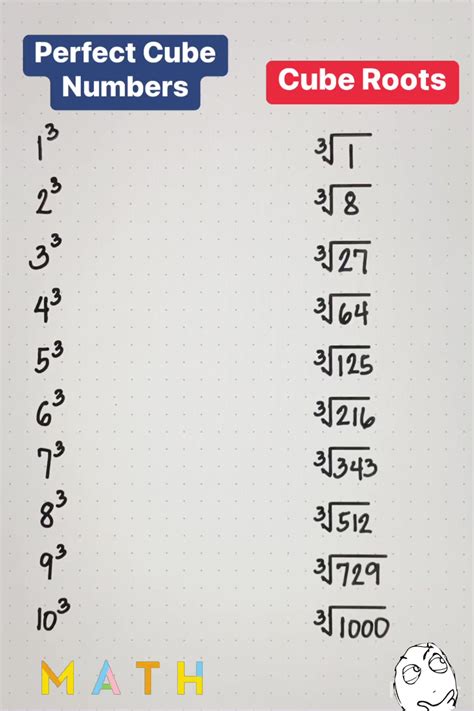 Perfect Cube
Numbers
Cube Roots
1³ ∛1
2³ ∛8
3³ ∛27
4³ ∛64
5³ ∛125
6³ ∛216
7³ ∛343
8³ ∛512
9³ ∛729
10³ ∛1000
MATH